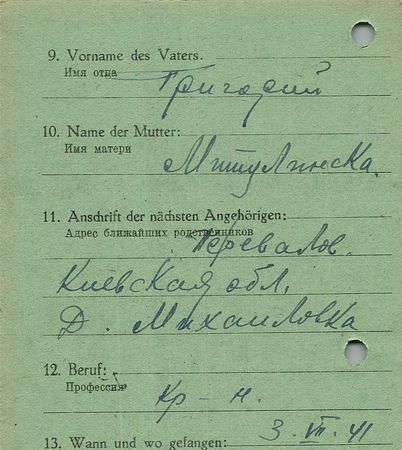 9. Vorname des Vaters.
Имя отца
Григорий
10. Name der Mutter:
Имя матери
Митулинска.
11. Anschrift der nächsten Angehörigen:
Адрес ближайших родственников
Перевалов.
Киевская обл.
Д. Михаиловка
12. Beruf:
Профессия
Кр-н.
13. Wann und wo gefangen:
3. VII. 41